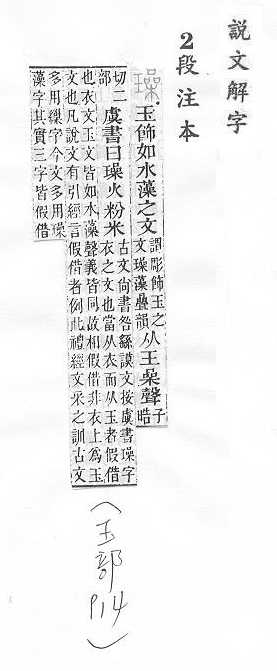 說文解字
2段注本
璪.玉飾如水藻之文謂彫飾玉之文璪藻疊韻从王喿聲子晧
切二部虞書曰璪火粉米古文尚書咎繇謨文按虞書璪字衣之文也當从衣而从王者假借
也衣文玉文皆如水藻聲義皆同故相假借非衣上爲玉
文也凡說文有引經言假借者例此禮經文采之訓古文
多用繅字今文多用璪
藻字其實三字皆假借
(玉部P14)